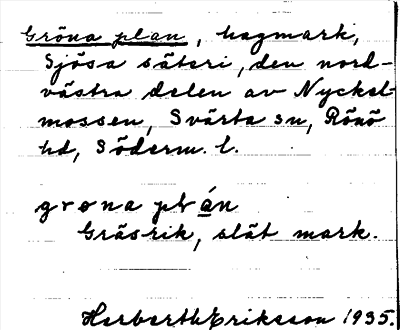 Gröna plan, hagmark,
Sjösa säteri, den nord-
västra delen av Nyckel-
mossen, Svärta sn, Rönö
hd, Söderm. l.
grona plán
Gräsrik, slät mark.
Herberth Eriksson 1935.